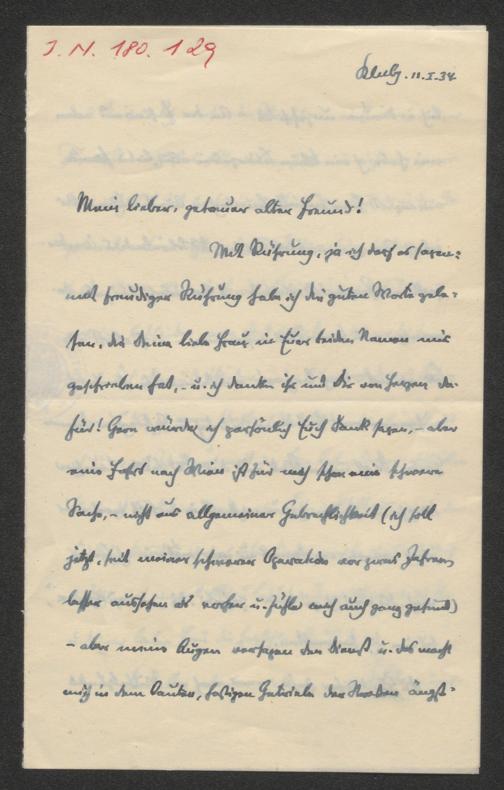 I. N. 180.129
Klbg. 11.I.34
Mein lieber, getreuer alter Freund!
Mit Rührung, ja ich darf es sagen:
mit freudiger Rührung habe ich die guten Worte gele-
sen, die Deine liebe Frau in Euer beiden Namen mir
geschrieben hat, – u. ich danke ihr und Dir von Herzen da-
für! Gern würde ich persönlich Euch Dank sagen, – aber
eine Fahrt nach Wien ist für mich schon eine schwere
Sache, – nicht aus allgemeiner Gebrechlichkeit (ich soll
jetzt, seit meiner schweren Operation vor zwei Jahren
besser aussehen als vorher u. fühle mich auch ganz gesund)
– aber meine Augen versagen den Dienst u. das macht
mich in dem lauten, hastigen Getriebe der Straßen ängst-